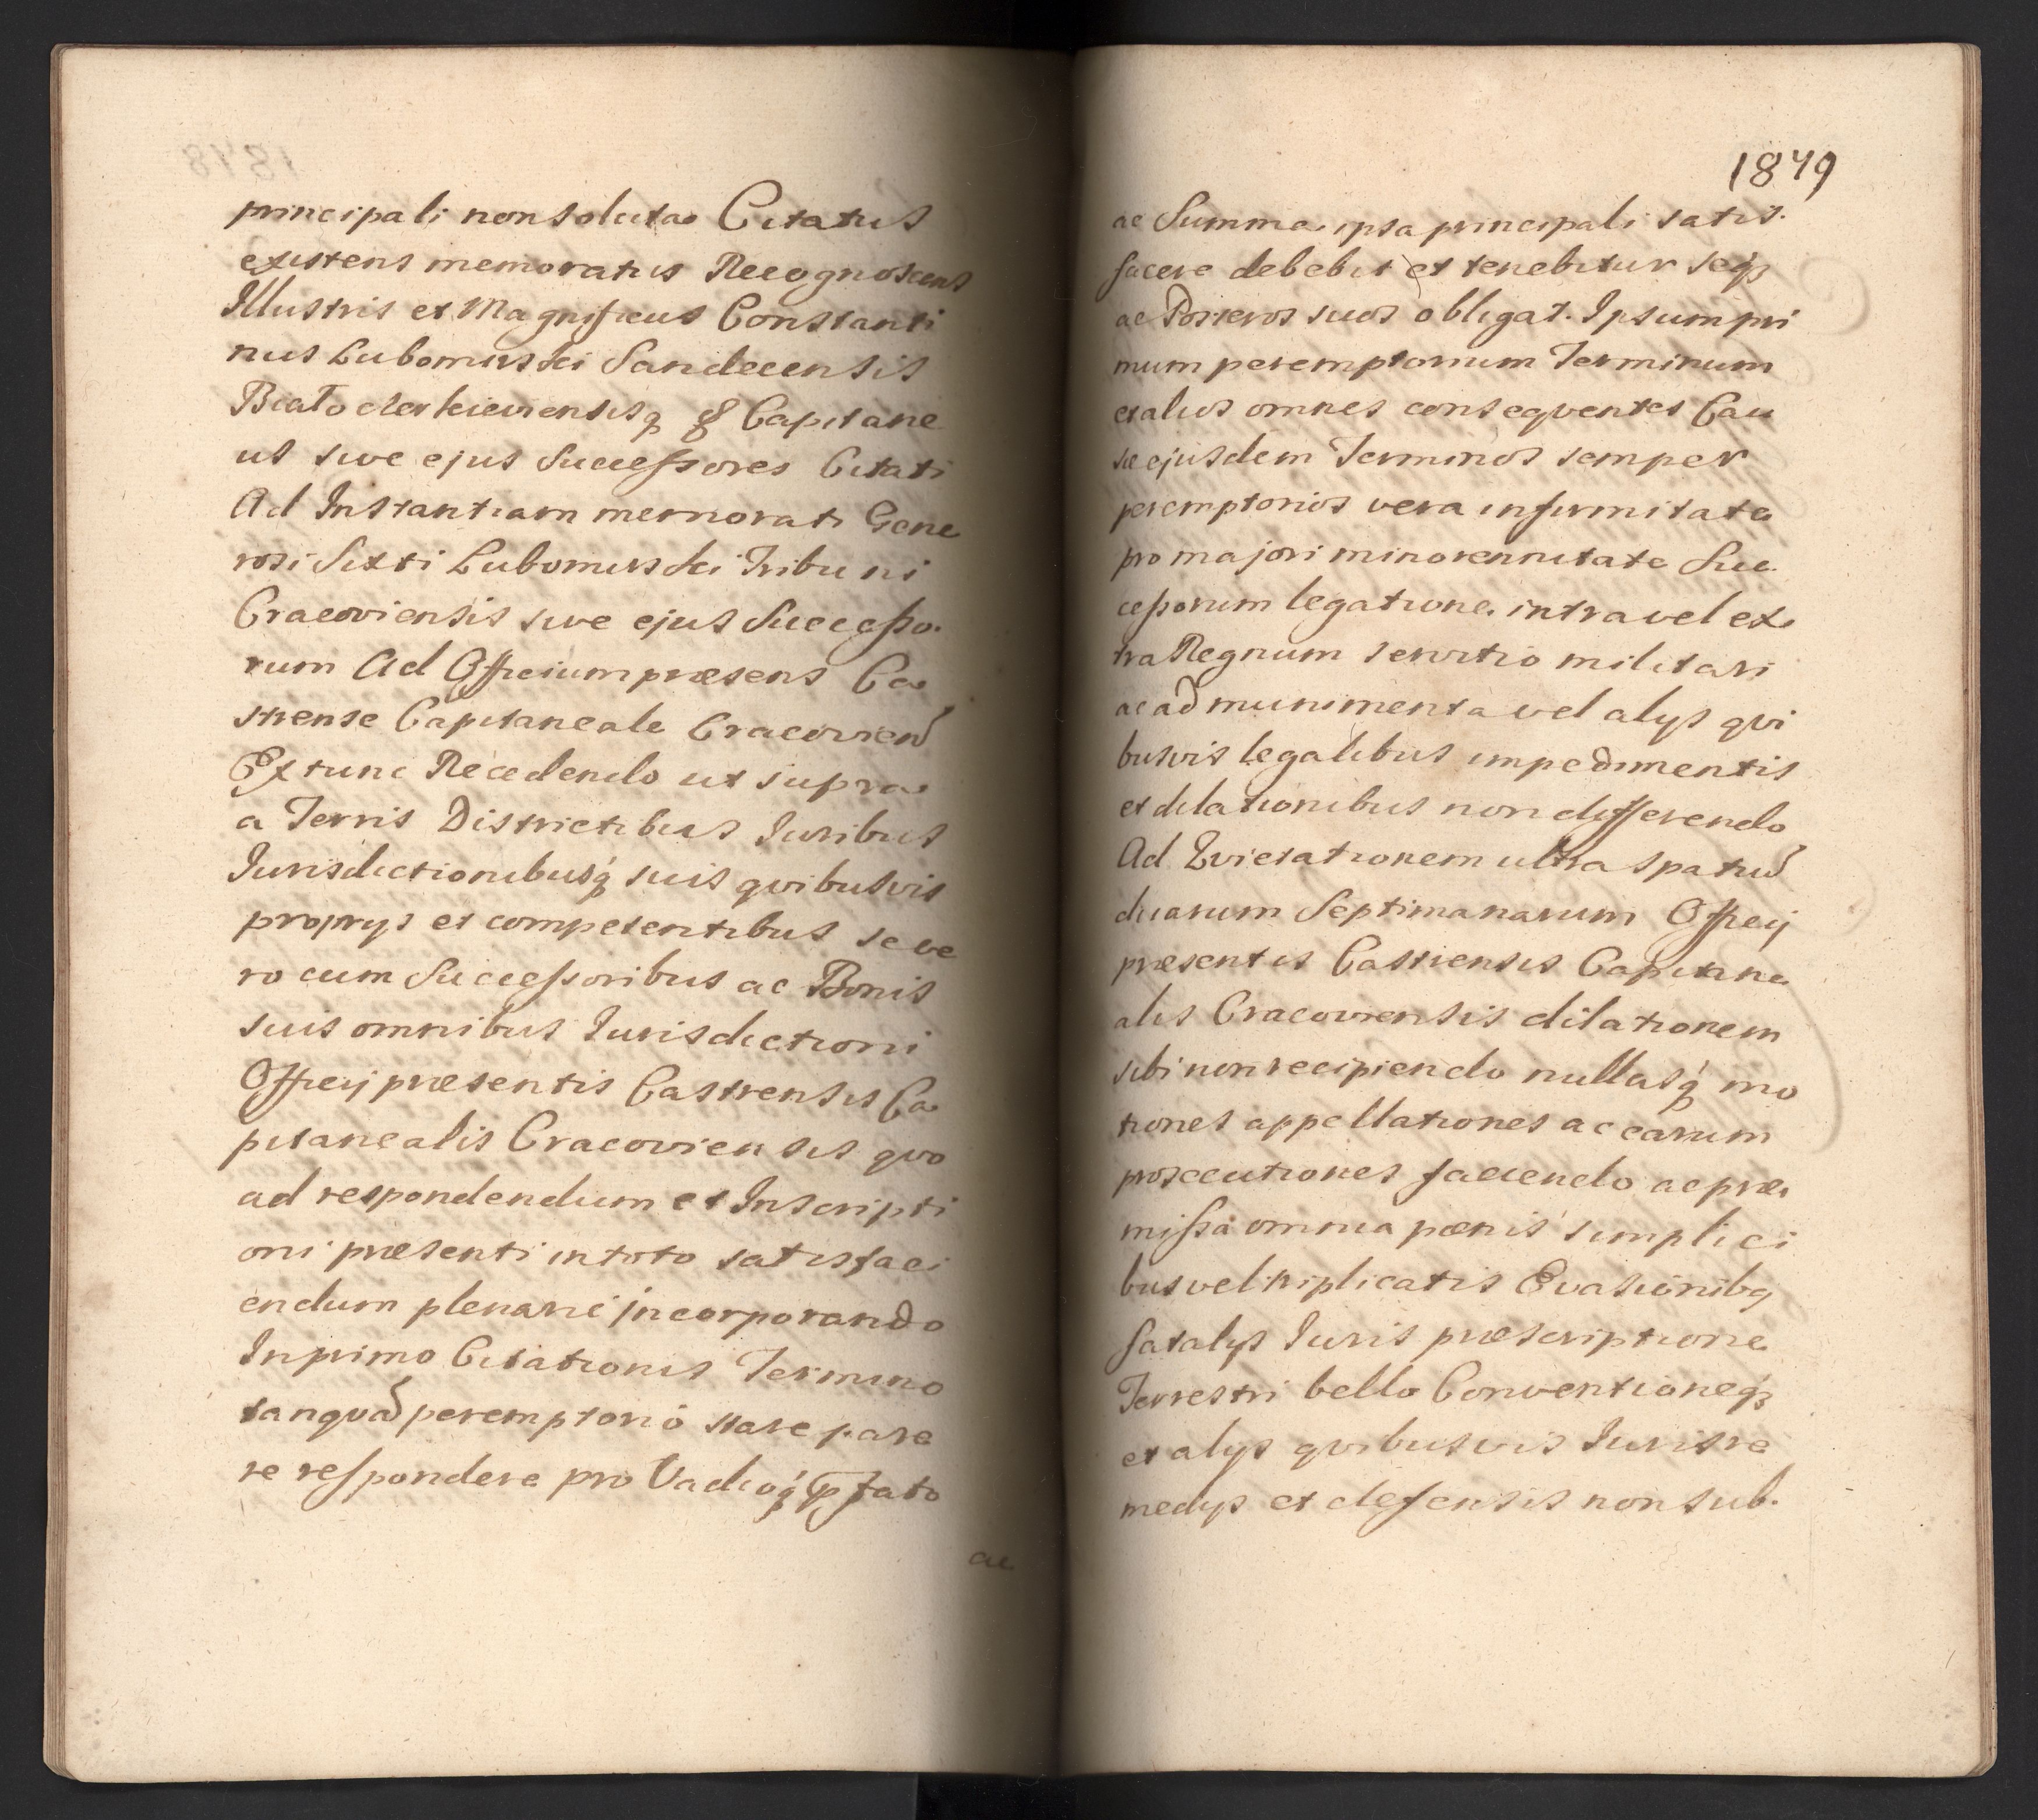 principali non soluta Citatus
existens memoratus Recognoscens
Illustris et Magnificus Constanti
nus Lubomirski Sandecensis
Biało cerkieviensisq &c Capitane
us sive ejus Successores Citati
Ad Instantiam memorati Gene
rosi Sixti Lubomirski Tribuni
Cracoviensis sive ejus Successo-
rum Ad Officium præsens Ca
strense Capitaneale Cracovien
Ex tunc Recedendo ut supra
a Terris Districtibus Iuribus
Iurisdictionibusq suis qvibusvis
proprys et competentibus se ve
ro cum Successoribus ac Bonis
suis omnibus Iurisdictioni
Officij præsentis Castrensis Ca
pitanealis Cracoviensis qvo
ad respondendum et Inscripti
oni præsenti in toto satisfaci
endum plenarie incorporando
In primo Citationis Termino
tanqvã peremptorio stare pare
re respondere pro Vadioq pfato
ac
1849
ac Summa ipsa principali satis-
facere debebit et tenebitur seqz
ac Posteros suos obligat. Ipsum pri
mum peremptorium Terminum
et alios omnes conseqventes Cau
sæ ejusdem Terminos semper
peremptorios vera infirmitate
pro majori minorennitate Suc-
cessorum legatione intra vel ex
tra Regnum servitio militari
ac ad munimenta vel alys qvi
busvis legalibus impedimentis
et dilationibus non differendo
Ad Evictationem ultra spatiũ
duarum Septimanarum Officij
præsentis Castrensis Capitane
alis Cracoviensis dilationem
sibi non recipiendo nullasq mo
tiones appellationes ac earum
prosecutiones faciendo ac præ
missa omnia pænis simplici
bus vel triplicatis Evasionibq
fatalys Iuris præscriptione
Terrestri bello Conventioneqz
et alys qvibusvis Iuris re
medys et defensis non sub-